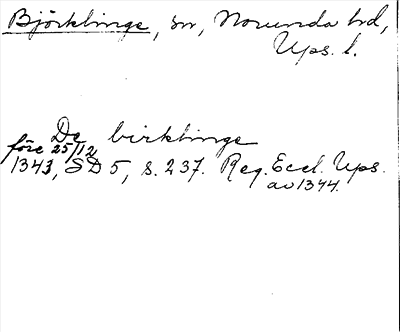 Björklinge, sn, Norunda hd,
Ups. l.
De birklinge
före 25/12
1343, SD 5, s. 237. Reg. Eccl. Ups.
av 1344.